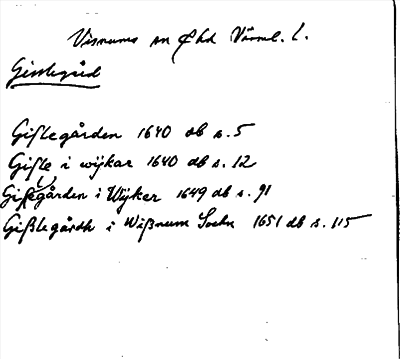 Visnums sn Ölhd Värml. l.
Gisslegård
Gißlegården 1640 db s. 5
Gißle i wijkar 1640 db s. 12
Gißlegården i Wijker 1649 db s. 91
Gißlegårdh i Wißnum Sochn 1651 db s. 115